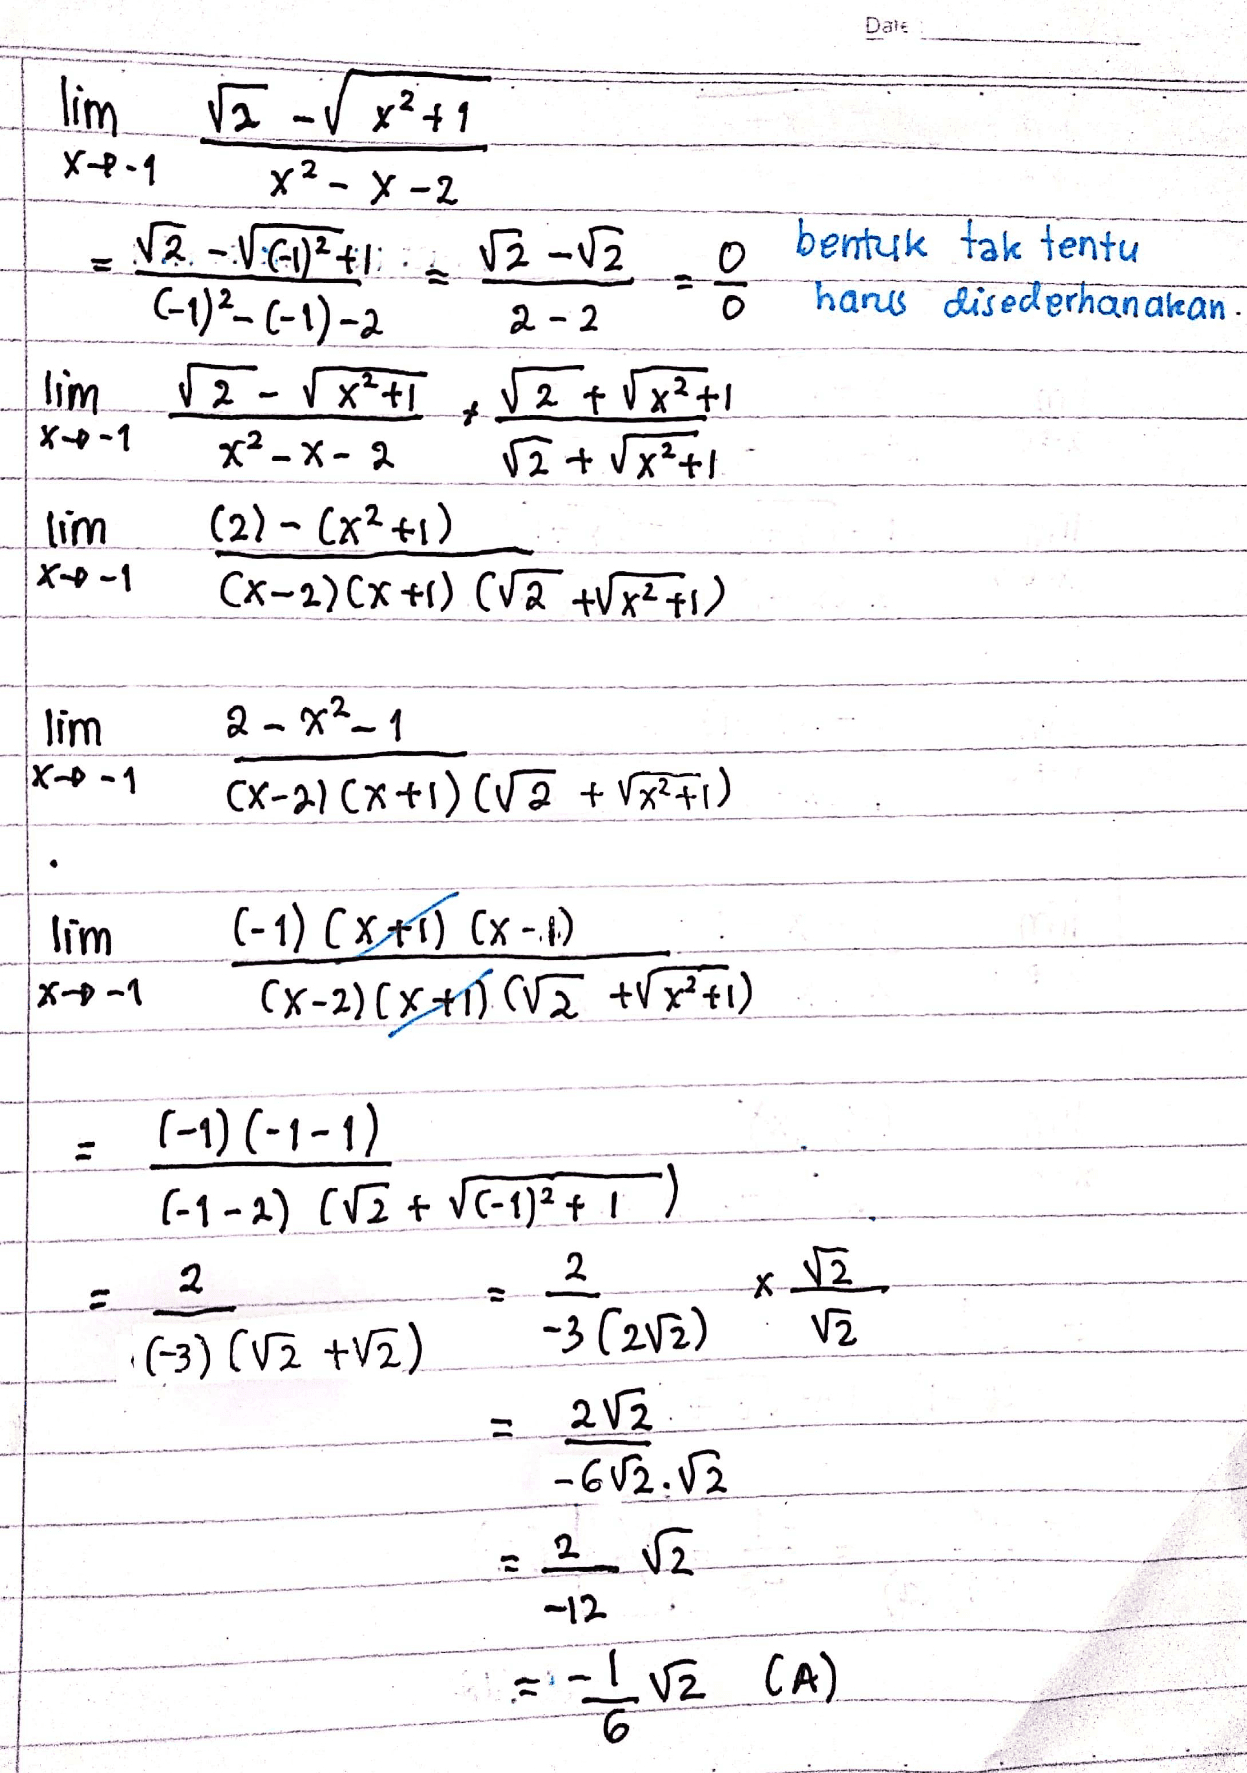 Date :
lim x→-1 (√2 - √(x²+1)) / (x² - x - 2)
= (√2 - √((-1)²+1)) / ((-1)² - (-1) - 2) = (√2 - √2) / (2 - 2) = 0/0 bentuk tak tentu
harus disederhanakan.
lim x→-1 (√2 - √(x²+1)) / (x² - x - 2) × (√2 + √(x²+1)) / (√2 + √(x²+1))
lim x→-1 ((2) - (x²+1)) / ((x-2)(x+1)(√2 + √(x²+1)))
lim x→-1 (2 - x² - 1) / ((x-2)(x+1)(√2 + √(x²+1)))
lim x→-1 ((-1)(x+1)(x-1)) / ((x-2)(x+1)(√2 + √(x²+1)))
= ((-1)(-1-1)) / ((-1-2)(√2 + √((-1)²+1)))
= 2 / ((-3)(√2 + √2)) = 2 / (-3(2√2)) × √2/√2
= 2√2 / (-6√2.√2)
= 2/-12 √2
= -1/6 √2 (A)